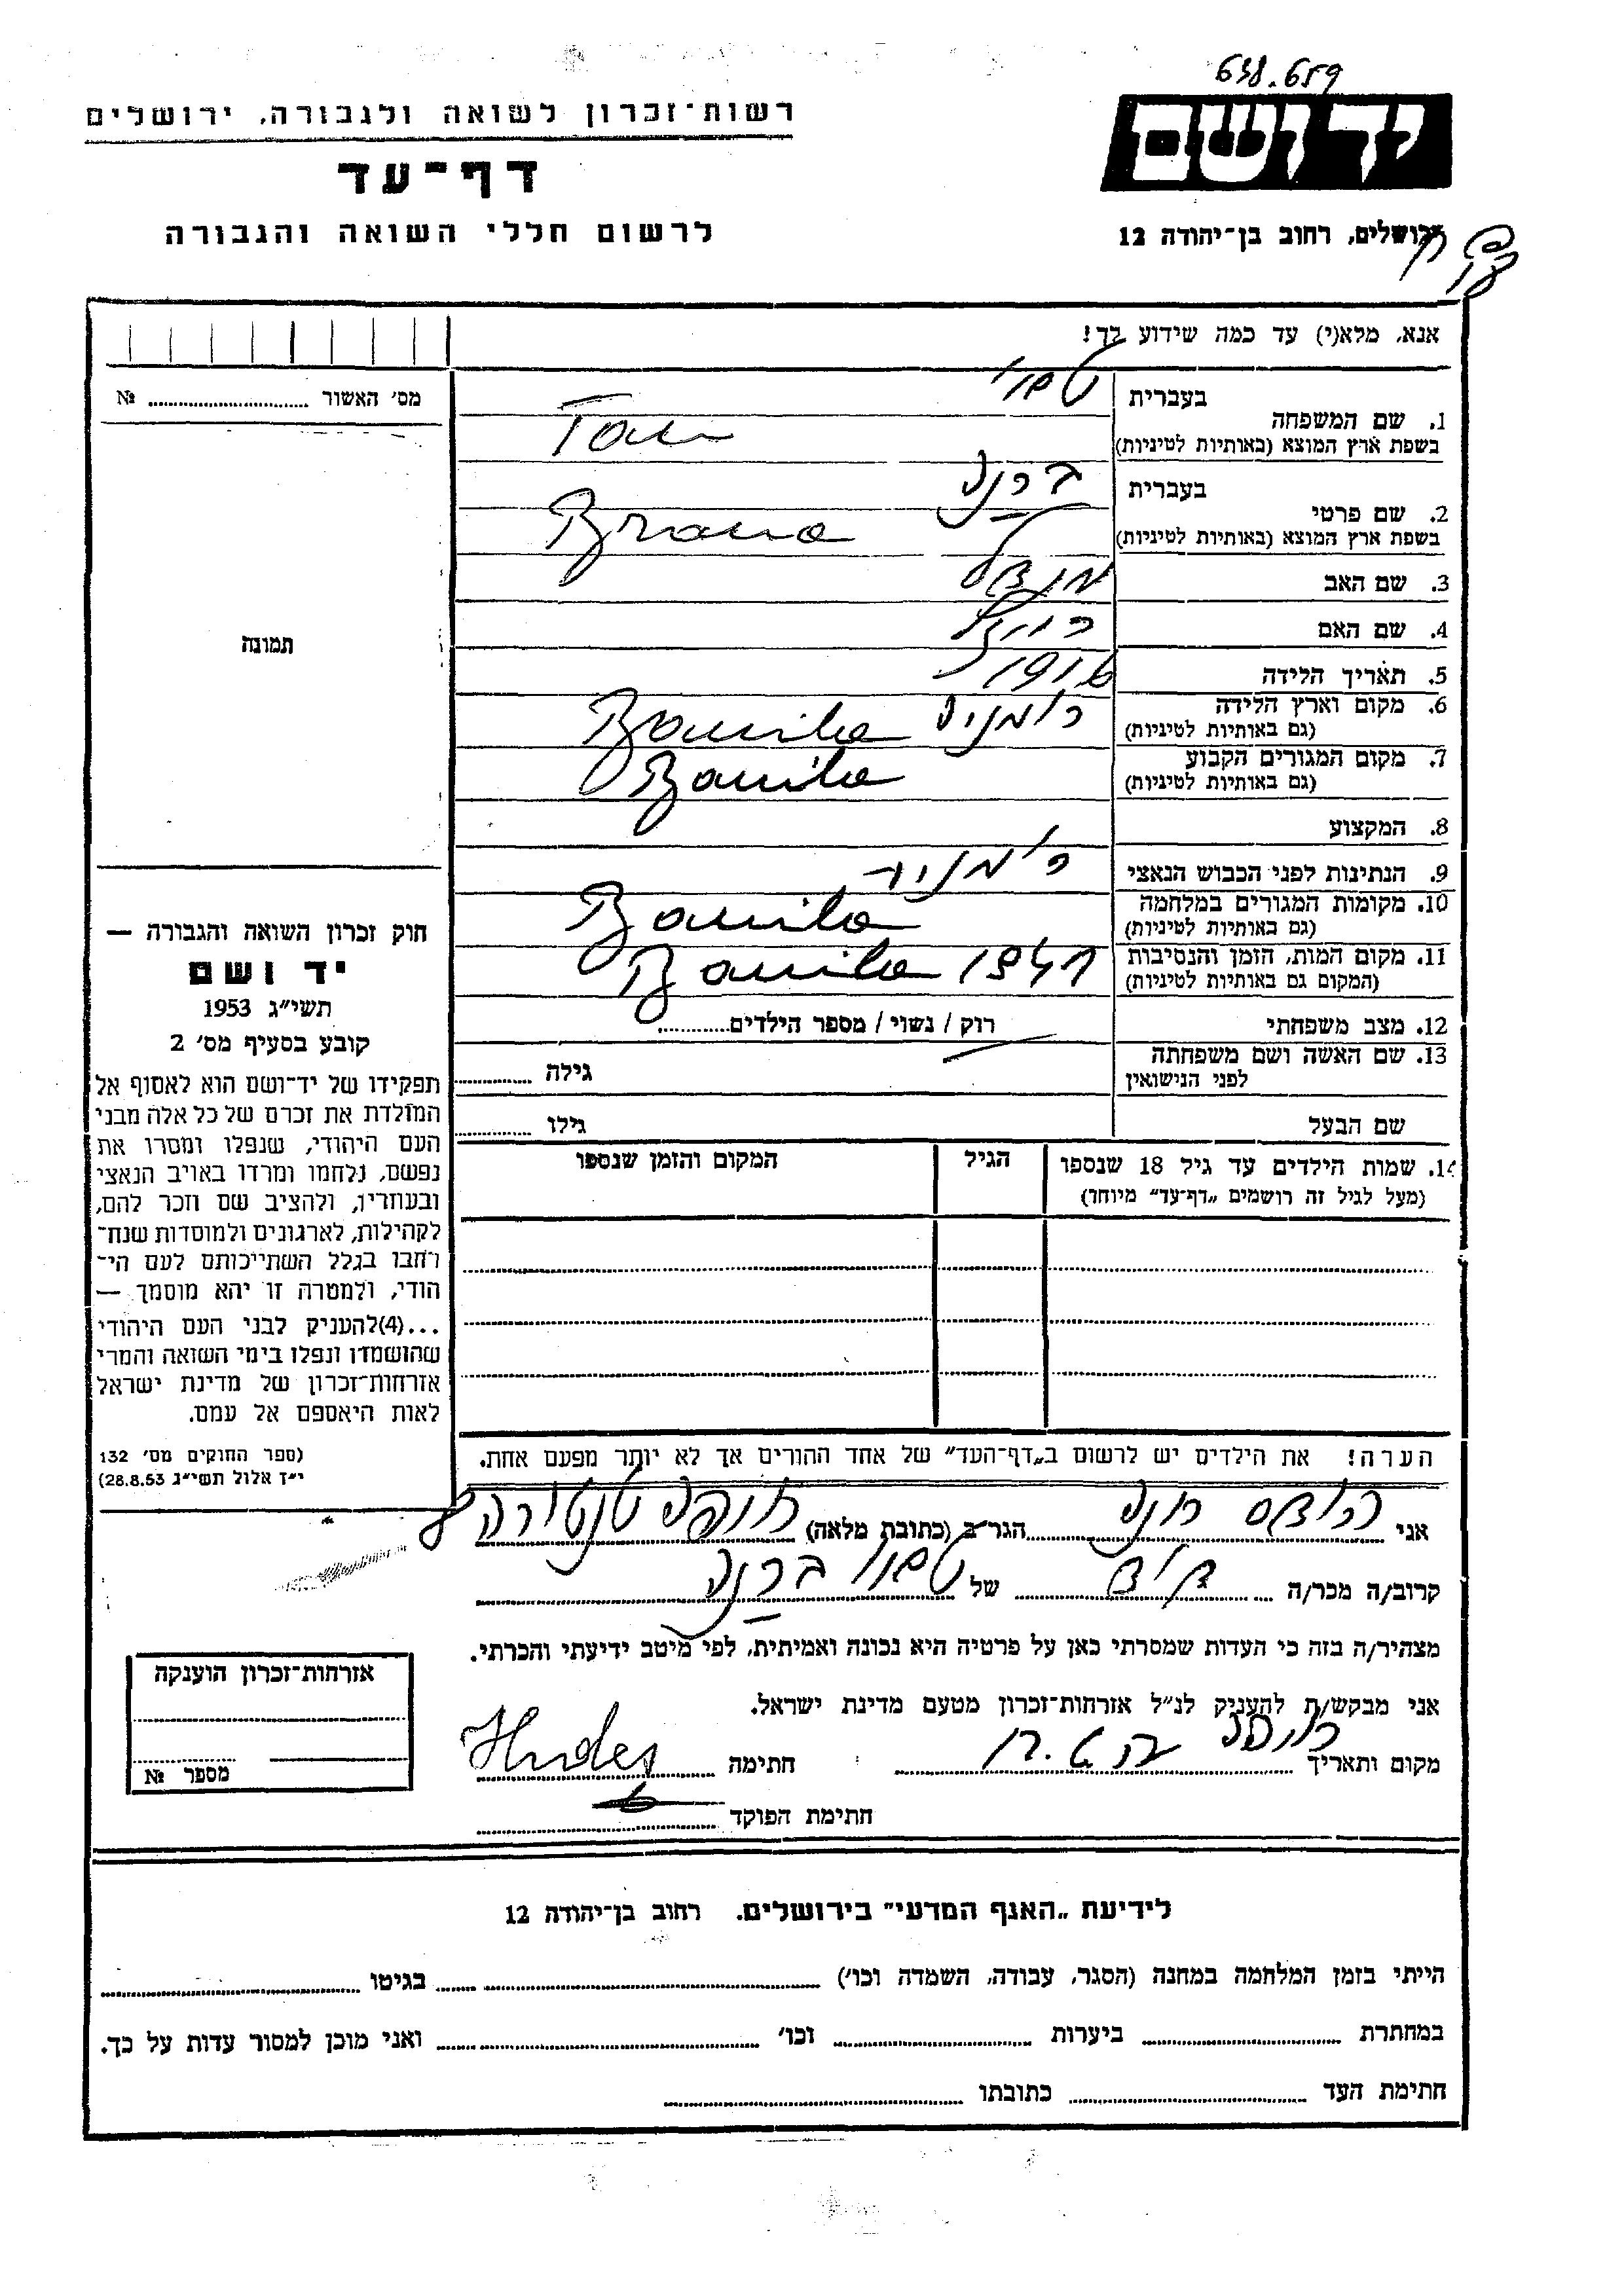 638.659
רשות־זכרון לשואה ולגבורה, ירושלים
יד ושם
דף־עד
לרשום חללי השואה והגבורה
ירושלים, רחוב בן־יהודה 12
אנא, מלא(י) עד כמה שידוע לך!
מס' האשור ........ №
תמונה
1. שם המשפחה
בעברית
בשפת ארץ המוצא (באותיות לטיניות)
2. שם פרטי
בעברית ברנה
בשפת ארץ המוצא (באותיות לטיניות) Brana
3. שם האב מנדל
4. שם האם רויזל
5. תאריך הלידה 1916
6. מקום וארץ הלידה רומניה Banila
(גם באותיות לטיניות)
7. מקום המגורים הקבוע Banila
(גם באותיות לטיניות)
8. המקצוע
9. הנתינות לפני הכבוש הנאצי רומניה
10. מקומות המגורים במלחמה Banila
(גם באותיות לטיניות)
11. מקום המות, הזמן והנסיבות 1941 Banila
(המקום גם באותיות לטיניות)
12. מצב משפחתי רוק / נשוי / מספר הילדים........
13. שם האשה ושם משפחתה
לפני הנישואין גילה ........
שם הבעל גילו ........
14. שמות הילדים עד גיל 18 שנספו הגיל המקום והזמן שנספו
(מעל לגיל זה רושמים „דף־עד" מיוחד)
הערה! את הילדים יש לרשום ב„דף־העד" של אחד ההורים אך לא יותר מפעם אחת.
חוק זכרון השואה והגבורה —
יד ושם
תשי"ג 1953
קובע בסעיף מס' 2
תפקידו של יד־ושם הוא לאסוף אל
המולדת את זכרם של כל אלה מבני
העם היהודי, שנפלו ומסרו את
נפשם, נלחמו ומרדו באויב הנאצי
ובעוזריו, ולהציב שם וזכר להם,
לקהילות, לארגונים ולמוסדות שנח־
רחבו בגלל השתייכותם לעם הי־
הודי, ולמטרה זו יהא מוסמך —
...(4) להעניק לבני העם היהודי
שהושמדו ונפלו בימי השואה והמרי
אזרחות־זכרון של מדינת ישראל
לאות היאספם אל עמם.
(ספר החוקים מס' 132
י"ז אלול תשי"ג 28.8.53)
אני הודס חנה הגר ב (כתובת מלאה) חיפה טנטורה 8
קרוב/ה מכר/ה של ברנה
מצהיר/ה בזה כי העדות שמסרתי כאן על פרטיה היא נכונה ואמיתית, לפי מיטב ידיעתי והכרתי.
אני מבקש/ת להעניק לנ"ל אזרחות־זכרון מטעם מדינת ישראל.
מקום ותאריך חיפה חתימה Hudes
חתימת הפוקד
אזרחות־זכרון הוענקה
מספר №
לידיעת „האגף המדעי" בירושלים. רחוב בן־יהודה 12
הייתי בזמן המלחמה במחנה (הסגר, עבודה, השמדה וכו') ........ בגיטו ........
במחתרת ........ ביערות ........ וכו' ........ ואני מוכן למסור עדות על כך.
חתימת העד ........ כתובתו ........